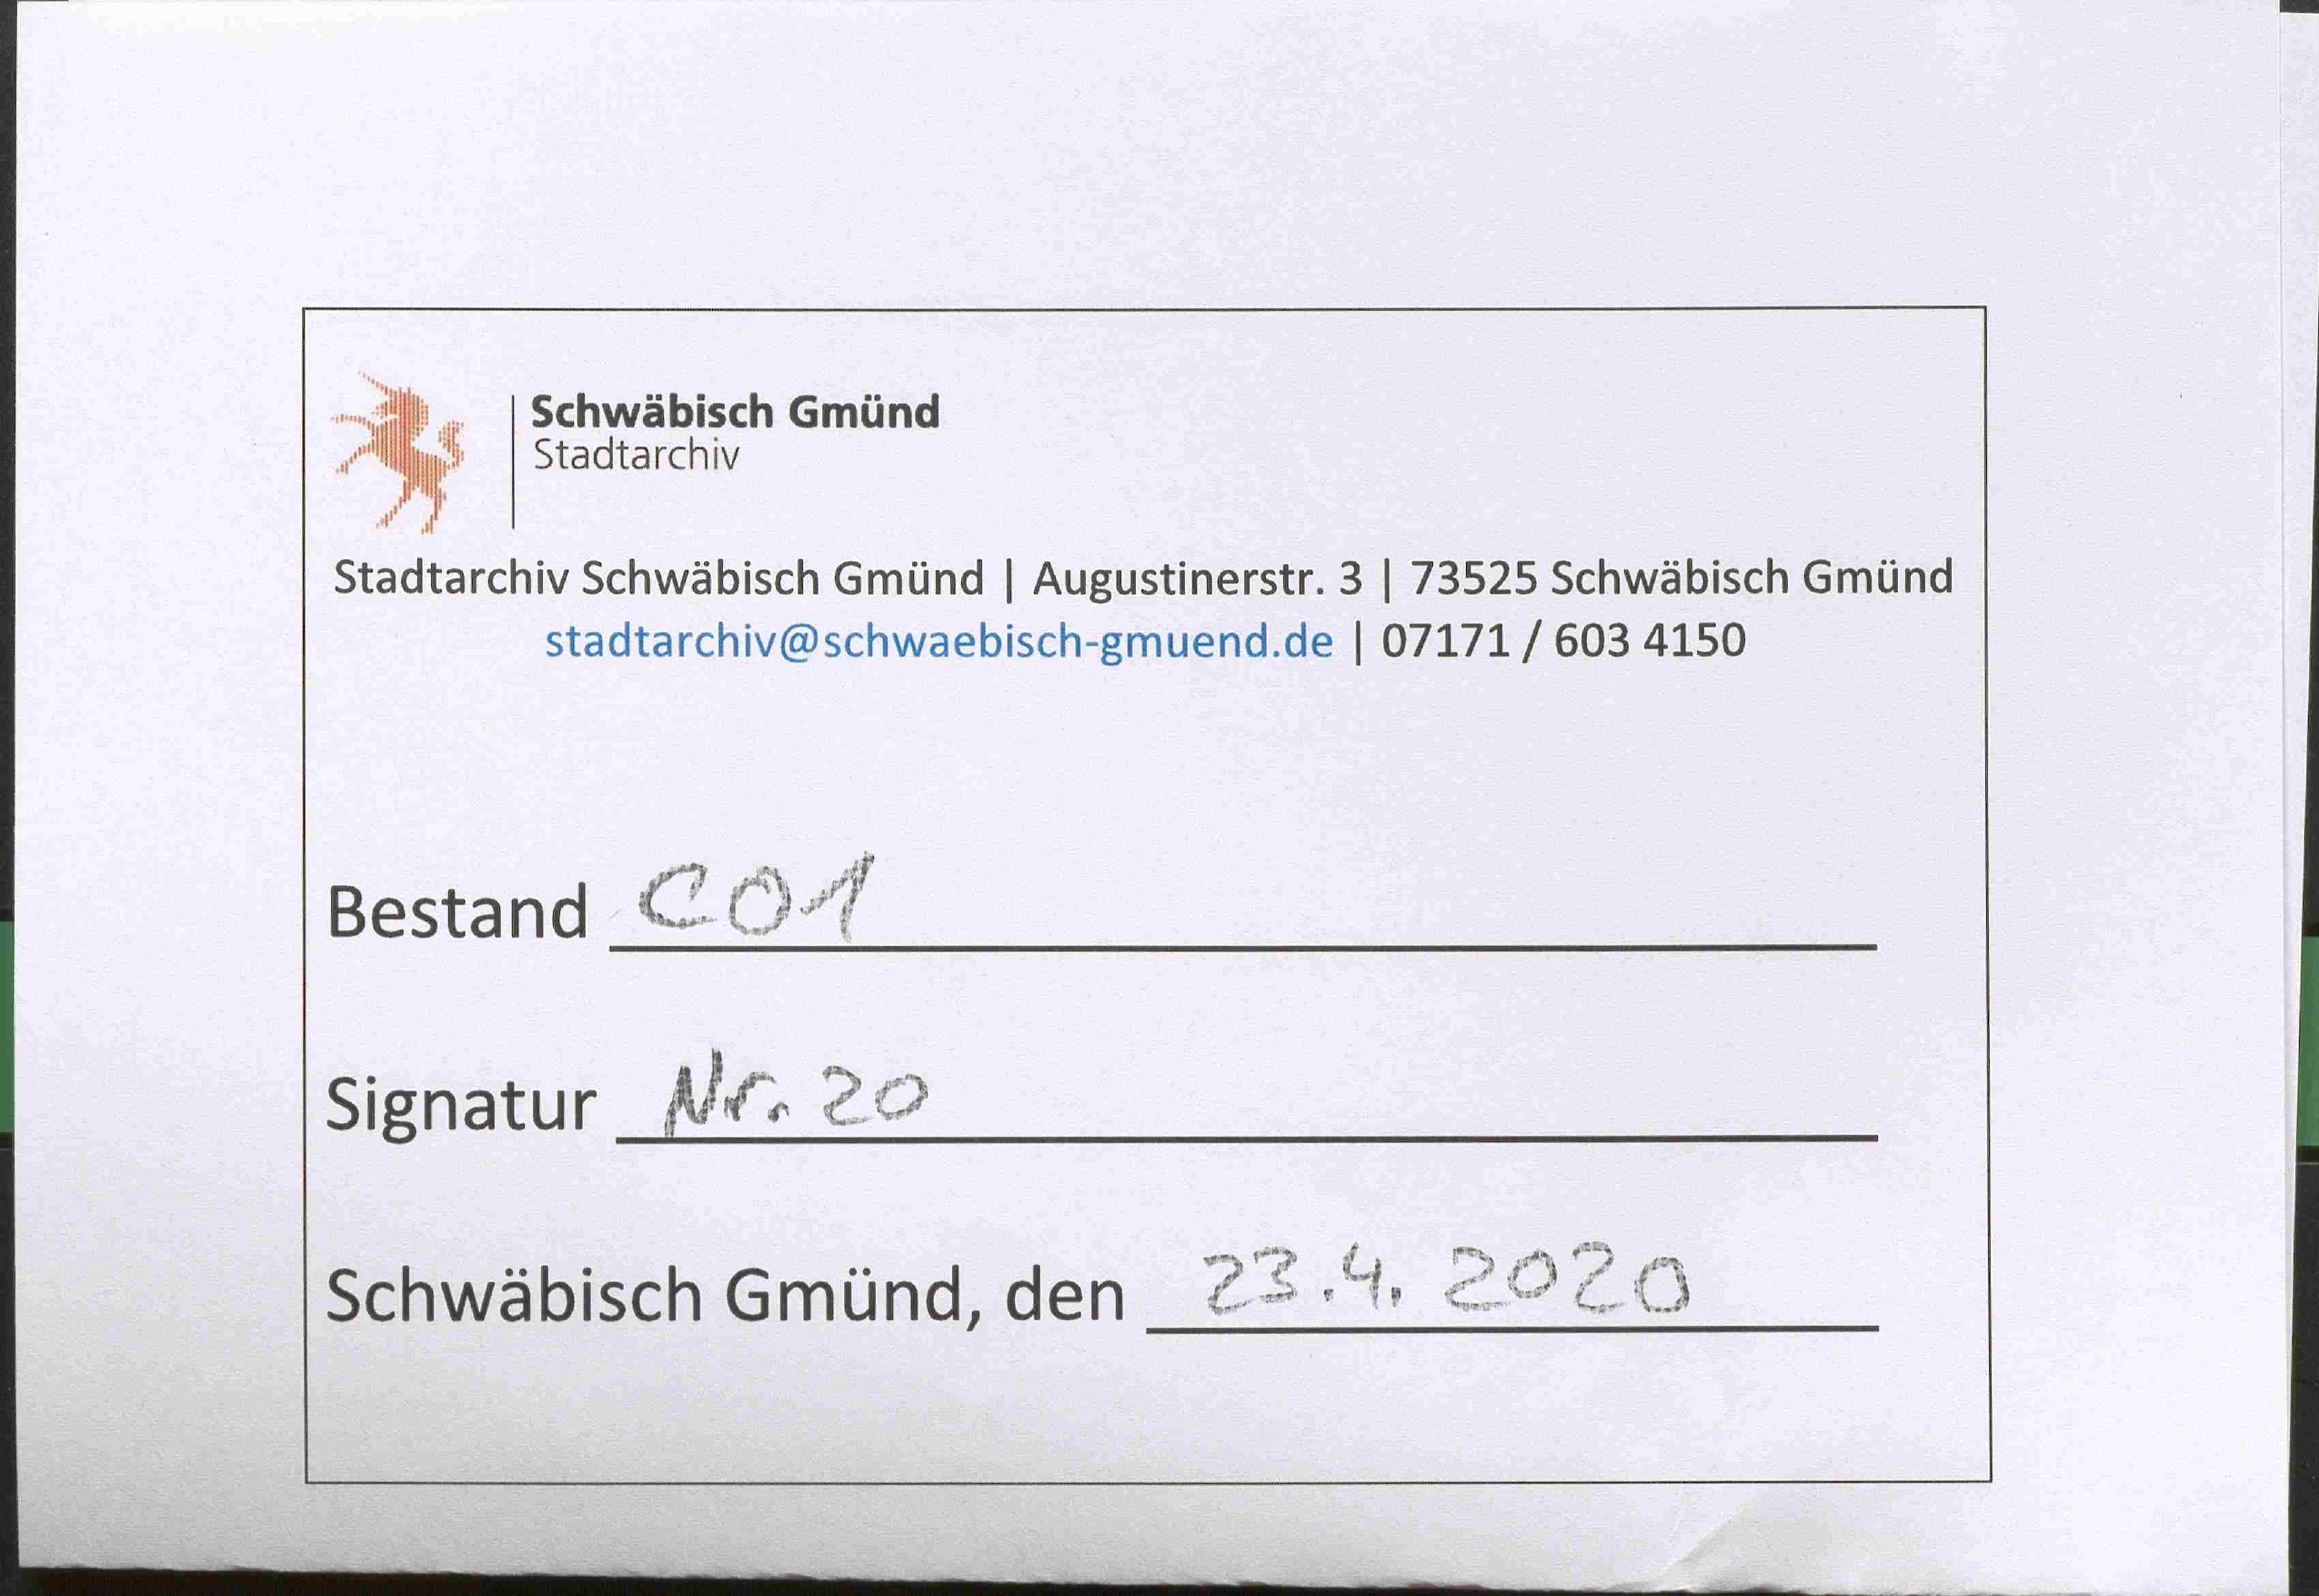 Schwäbisch Gmünd
Stadtarchiv
Stadtarchiv Schwäbisch Gmünd | Augustinerstr. 3 | 73525 Schwäbisch Gmünd
stadtarchiv@schwaebisch-gmuend.de | 07171 / 603 4150
Bestand C01
Signatur Nr. 20
Schwäbisch Gmünd, den 23.4. 2020